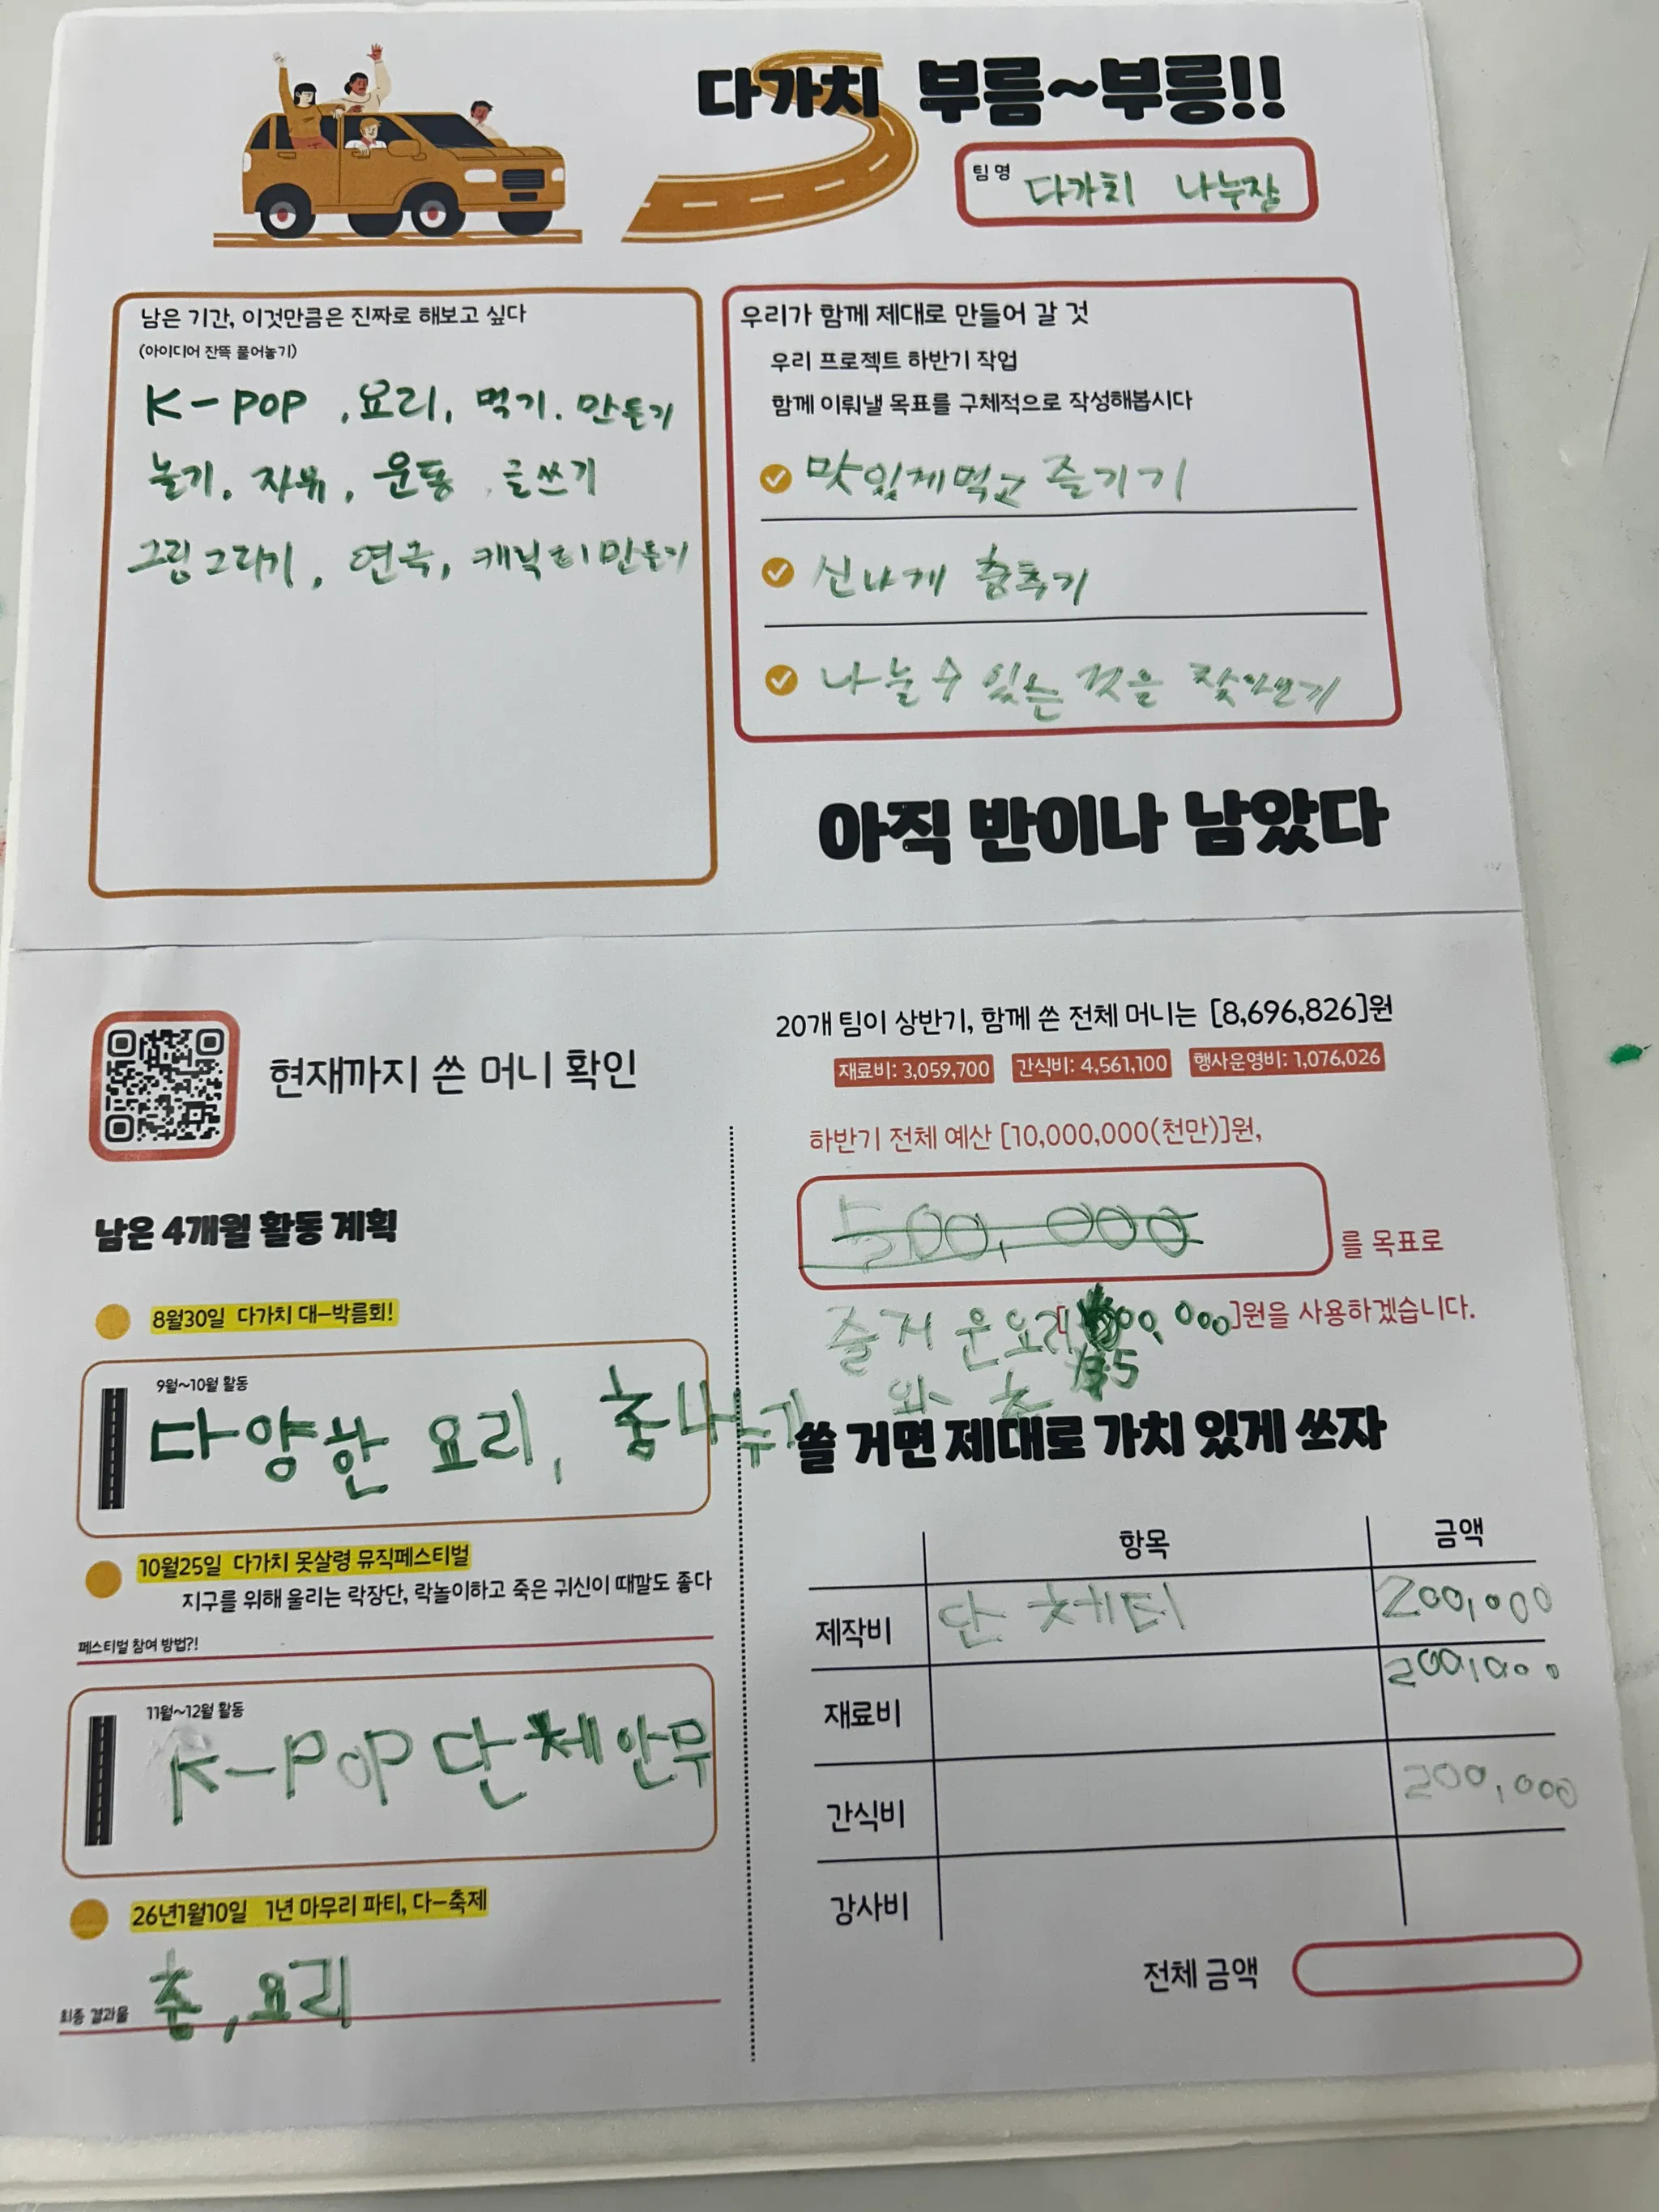 다가치 부름~부릉!!
팀명 다가치 나누장
남은 기간, 이것만큼은 진짜로 해보고 싶다
(아이디어 잔뜩 풀어놓기)
K-POP, 요리, 먹기. 만들기
놀기, 자유, 운동, 글쓰기
그림그리기, 연극, 캐릭터만들기
우리가 함께 제대로 만들어 갈 것
우리 프로젝트 하반기 작업
함께 이뤄낼 목표를 구체적으로 작성해봅시다
맛있게먹고 즐기기
신나게 춤추기
나눌 수 있는 것을 찾아보기
아직 반이나 남았다
현재까지 쓴 머니 확인
남은 4개월 활동 계획
8월30일 다가치 대-박름회!
9월~10월 활동
다양한 요리, 춤나누기
10월25일 다가치 못살령 뮤직페스티벌
지구를 위해 울리는 락장단, 락놀이하고 죽은 귀신이 때깔도 좋다
페스티벌 참여 방법?!
11월~12월 활동
K-POP 단체안무
26년1월10일 1년 마무리 파티, 다-축제
최종 결과물 춤, 요리
20개 팀이 상반기, 함께 쓴 전체 머니는 [8,696,826]원
재료비: 3,059,700 간식비: 4,561,100 행사운영비: 1,076,026
하반기 전체 예산 [10,000,000(천만)]원,
500,000 를 목표로
즐거운요리 00,000]원을 사용하겠습니다.
와 춤 5
쓸 거면 제대로 가치 있게 쓰자
항목 금액
제작비 단체티 200,000
재료비 200,000
간식비 200,000
강사비
전체 금액